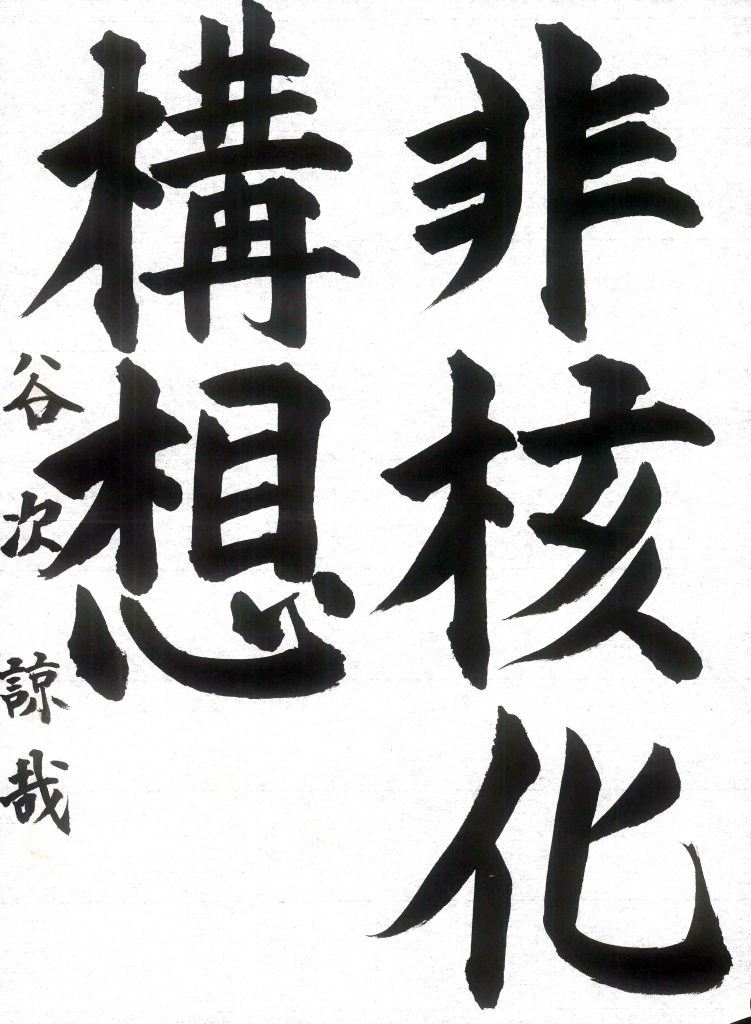 非核化
構想
谷次諒哉